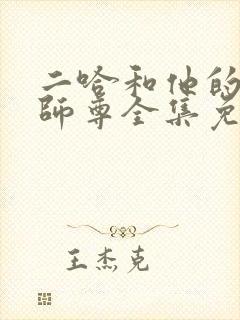 二哈和他的
師尊全集免
王杰克